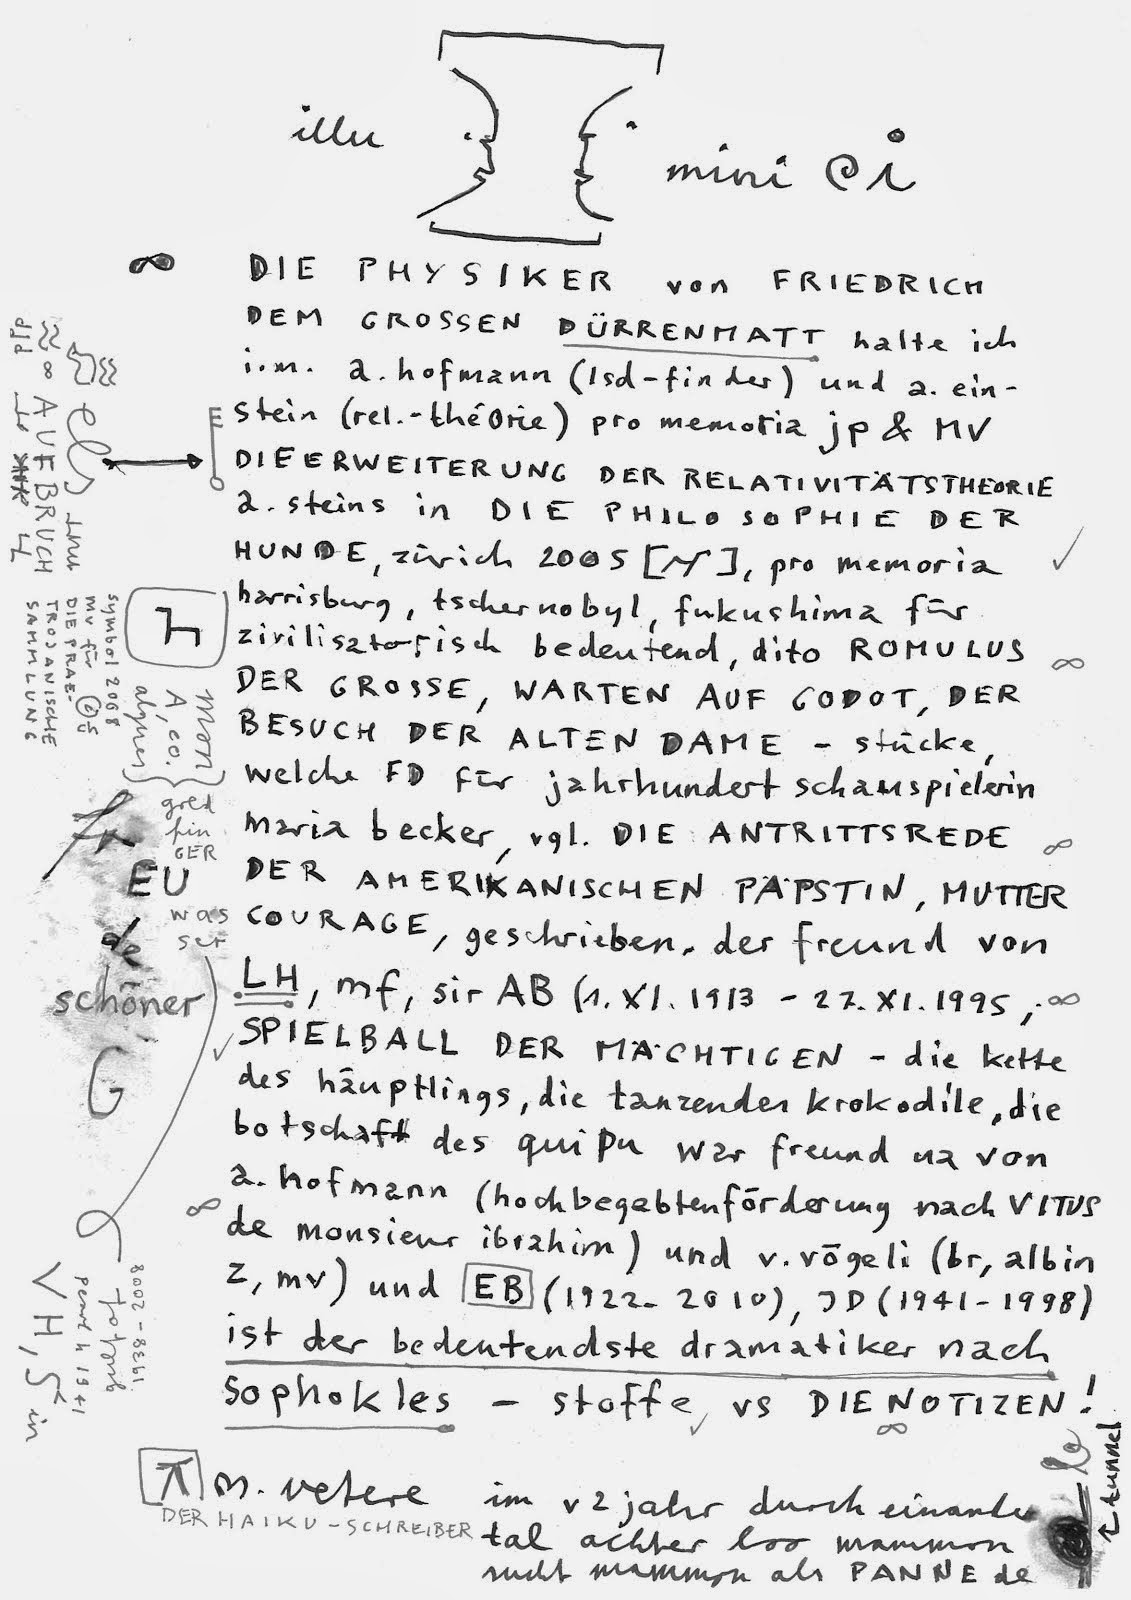 illu
mini @i
∞ DIE PHYSIKER von FRIEDRICH
DEM GROSSEN DÜRRENMATT halte ich
i.m. a. hofmann (lsd-finder) und a. ein-
stein (rel.-théorie) pro memoria jp & MV
DIE ERWEITERUNG DER RELATIVITÄTSTHEORIE
a. steins in DIE PHILOSOPHIE DER
HUNDE, zürich 2005 [N], pro memoria
harrisburg, tschernobyl, fukushima für
zivilisatorisch bedeutend, dito ROMULUS ∞
DER GROSSE, WARTEN AUF GODOT, DER
BESUCH DER ALTEN DAME – stücke,
welche FD für jahrhundertschauspielerin
maria becker, vgl. DIE ANTRITTSREDE ∞
DER AMERIKANISCHEN PÄPSTIN, MUTTER
COURAGE, geschrieben. der freund von
LH, mf, sir AB (1. XI. 1913 – 27. XI. 1995, ∞
SPIELBALL DER MÄCHTIGEN – die kette
des häuptlings, die tanzenden krokodile, die
botschaft des quipu war freund ua von
a. hofmann (hochbegabtenförderung nach VITUS
∞ de monsieur ibrahim) und v. vögeli (br, albin
z, mv) und EB (1922–2010), JD (1941–1998)
ist der bedeutendste dramatiker nach
sophokles – stoffe vs DIE NOTIZEN!
∞
π m. vetere
DER HAIKU-SCHREIBER
im v2 jahr durch
tal achter loo mammon
sucht mammon als PANNE de
le
tunnel
els
AUFBRUCH
symbol 2068
mv für
DIE PRAE-
TROJANISCHE
SAMMLUNG
mon
A, co.
gred
fin
GER
EU
was
ser
de
schöner
G
1938–2008
VH, 5 in